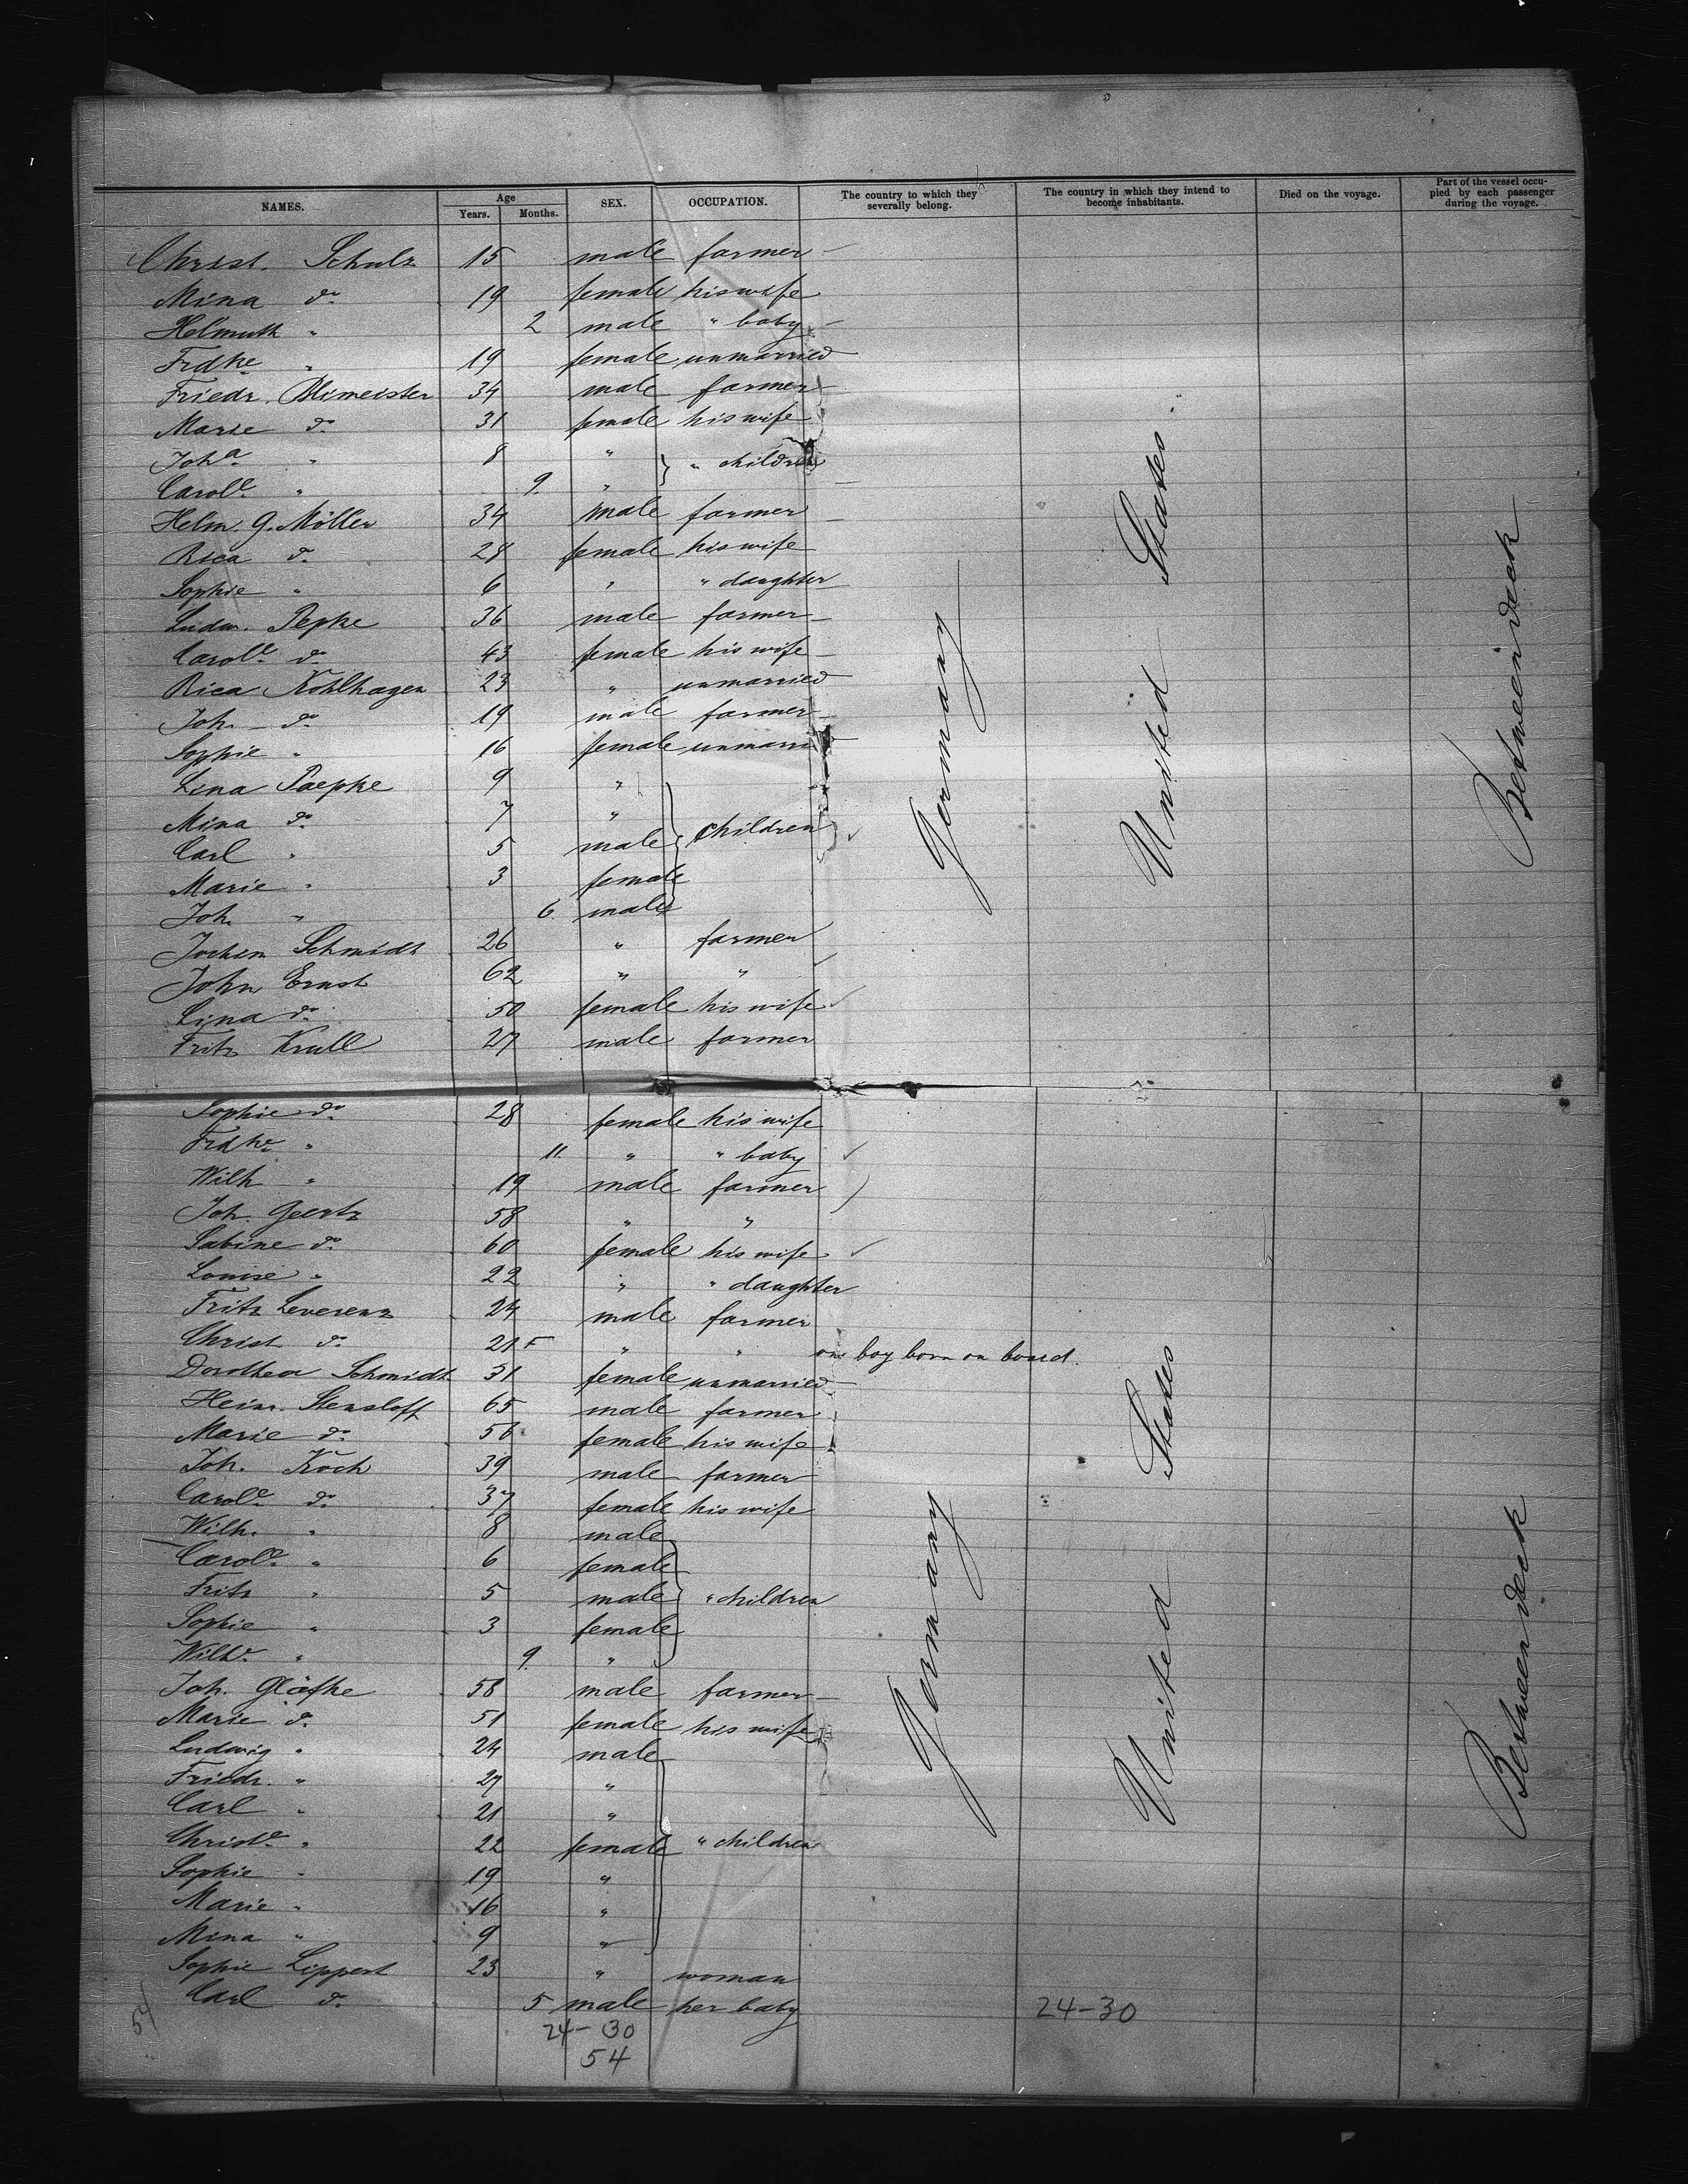 NAMES. Age Years. Months. SEX. OCCUPATION. The country to which they severally belong. The country in which they intend to become inhabitants. Died on the voyage. Part of the vessel occupied by each passenger during the voyage.
Christ. Schulz 15 male farmer
Mina do 19 female his wife
Helmuth " 2 male " baby
Frdke " 19 female unmarried
Friedr. Blimeister 34 male farmer
Marie do 31 female his wife
Joha " 8 " " children
Carole " 9 "
Helm. G. Möller 34 male farmer
Rica do 28 female his wife
Sophie " 6 " " daughter
Ludw. Pepke 36 male farmer
Carole do 43 female his wife
Rica Kohlhagen 23 " unmarried
Joh. do 19 male farmer
Sophie " 16 female unmarri
Lina Paepke 9 "
Mina do 7 "
Carl " 5 male children
Marie " 3 female
Joh. " 6 male
Jochim Schmidt 26 " farmer
John Ernst 62 " "
Lina do 50 female his wife
Fritz Krull 27 male farmer
Germany United States Betweendeck
Sophie do 28 female his wife
Frdke " 11 " " baby
Wilh " 19 male farmer
Joh. Geertz 58 " "
Sabine do 60 female his wife
Louise " 22 " " daughter
Fritz Leverenz 24 male farmer
Christ do 21 F " " one boy born on board.
Dorothea Schmidt 31 female unmarried
Heinr. Stensloff 65 male farmer
Marie do 56 female his wife
Joh. Koch 39 male farmer
Carole do 37 female his wife
Wilh. " 8 male
Carole " 6 female
Fritz " 5 male " children
Sophie " 3 female
Wilhe " 9 "
Joh. Gläfke 58 male farmer
Marie do 51 female his wife
Ludwig " 24 male
Friedr. " 27 "
Carl " 21 "
Christe " 22 female " children
Sophie " 19 "
Marie " 16 "
Mina " 9 "
Sophie Lippert 23 " woman
Carl do 5 male her baby
Germany United States Betweendeck
54 24-30 24-30
54